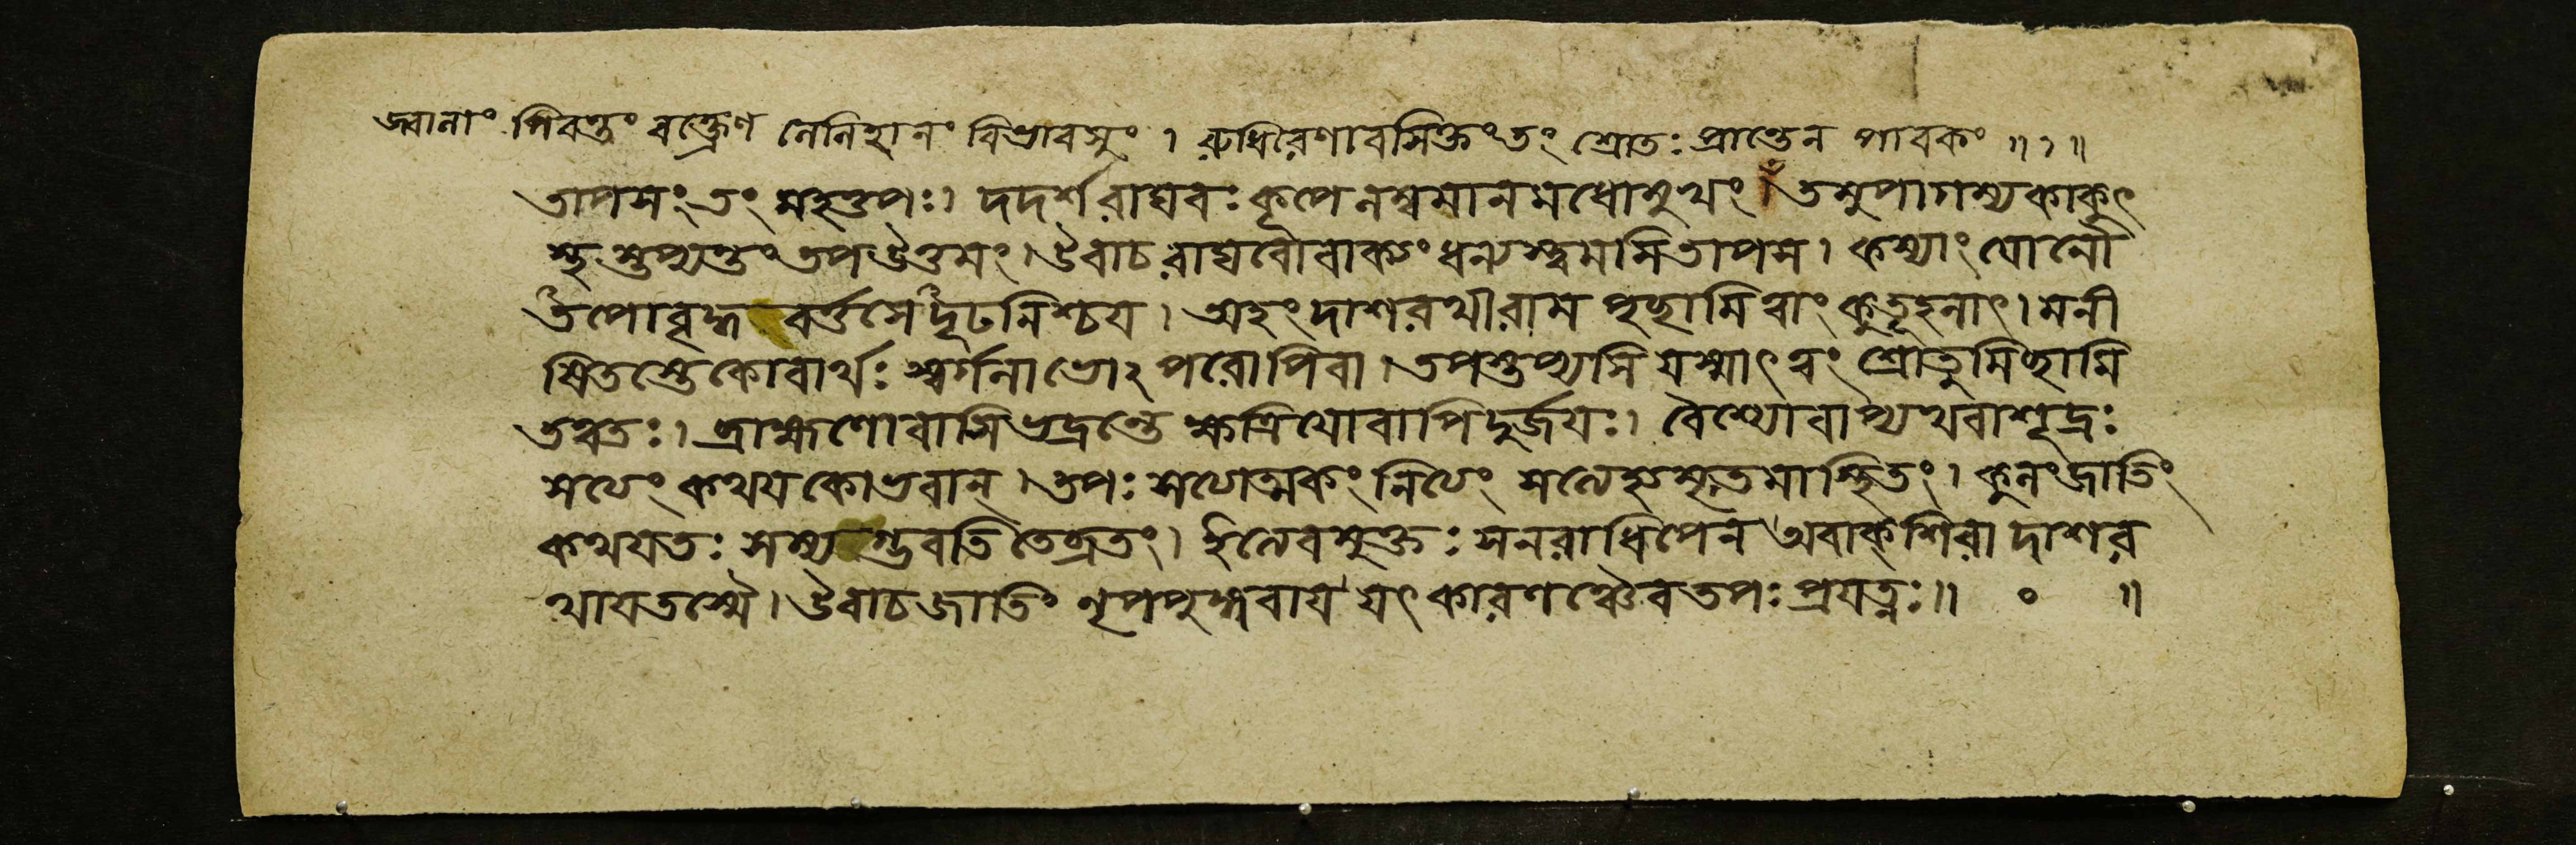 জ্বালাং পিবন্তং বক্ত্রেণ লেলিহানং বিভাবসুং । রুধিরেণাবসিক্তং তং শ্রোতঃ প্রান্তেন পাবকং ॥ ১ ॥
তাপসং তং মহত্তপঃ। দদর্শ রাঘবঃ কৃপে লম্বমানমধোমুখং। তমুপাগম্যকাকুৎ
স্থ স্তুপ্যন্তং তপউত্তমং। উবাচ রাঘবোবাক্যং ধন্যস্ত্বমসিতাপস। কস্যাং যোনৌ
তপোবৃদ্ধ বর্ত্তসে দৃঢনিশ্চয। অহং দাশরথীরাম পৃছামি ত্বাং কুতূহলাৎ। মনী
ষিতস্তে কোবার্থঃ স্বর্গলাভোঽপরোপিবা। তপস্তপ্যসি যস্মাৎ ত্বং শ্রোতুমিছামি
তত্বতঃ। ব্রাহ্মণোবাসি ভদ্রন্তে ক্ষত্রিযোবাপি দুর্জযঃ। বৈশ্যোবাপ্যথবাশূদ্রঃ
সত্যং কথয কোভবান্। তপঃ সত্যাত্মকং নিত্যং সত্যেহ্যমৃতমাস্থিতং। কুলং জাতিং
কথযতঃ সম্য ম্ভবতি তেব্রতং। ইত্যেবমুক্তঃ সনরাধিপেন অবাক্শিরা দাশর
থাযতস্মৈ। উবাচ জাতিং নৃপপুঙ্গবায যৎ কারণঞ্চৈব তপঃ প্রযত্নঃ॥ ० ॥